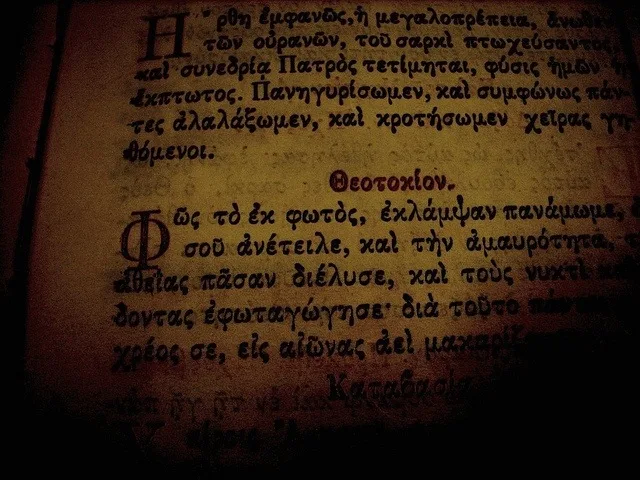 Ἤρθη ἐμφανῶς, ἡ μεγαλοπρέπεια, ἄνωθεν
τῶν οὐρανῶν, τοῦ σαρκὶ πτωχεύσαντος,
καὶ συνεδρίᾳ Πατρὸς τετίμηται, φύσις ἡμῶν ἡ
ἔκπτωτος. Πανηγυρίσωμεν, καὶ συμφώνως πάν-
τες ἀλαλάξωμεν, καὶ κροτήσωμεν χεῖρας γη-
θόμενοι.
Θεοτοκίον.
Φῶς τὸ ἐκ φωτὸς, ἐκλάμψαν πανάμωμε,
σοῦ ἀνέτειλε, καὶ τὴν ἀμαυρότητα,
ἀθεΐας πᾶσαν διέλυσε, καὶ τοὺς νυκτὶ
δοντας ἐφωταγώγησε· διὰ τοῦτο πάντες
χρέος σε, εἰς αἰῶνας ἀεὶ
Καταβασία